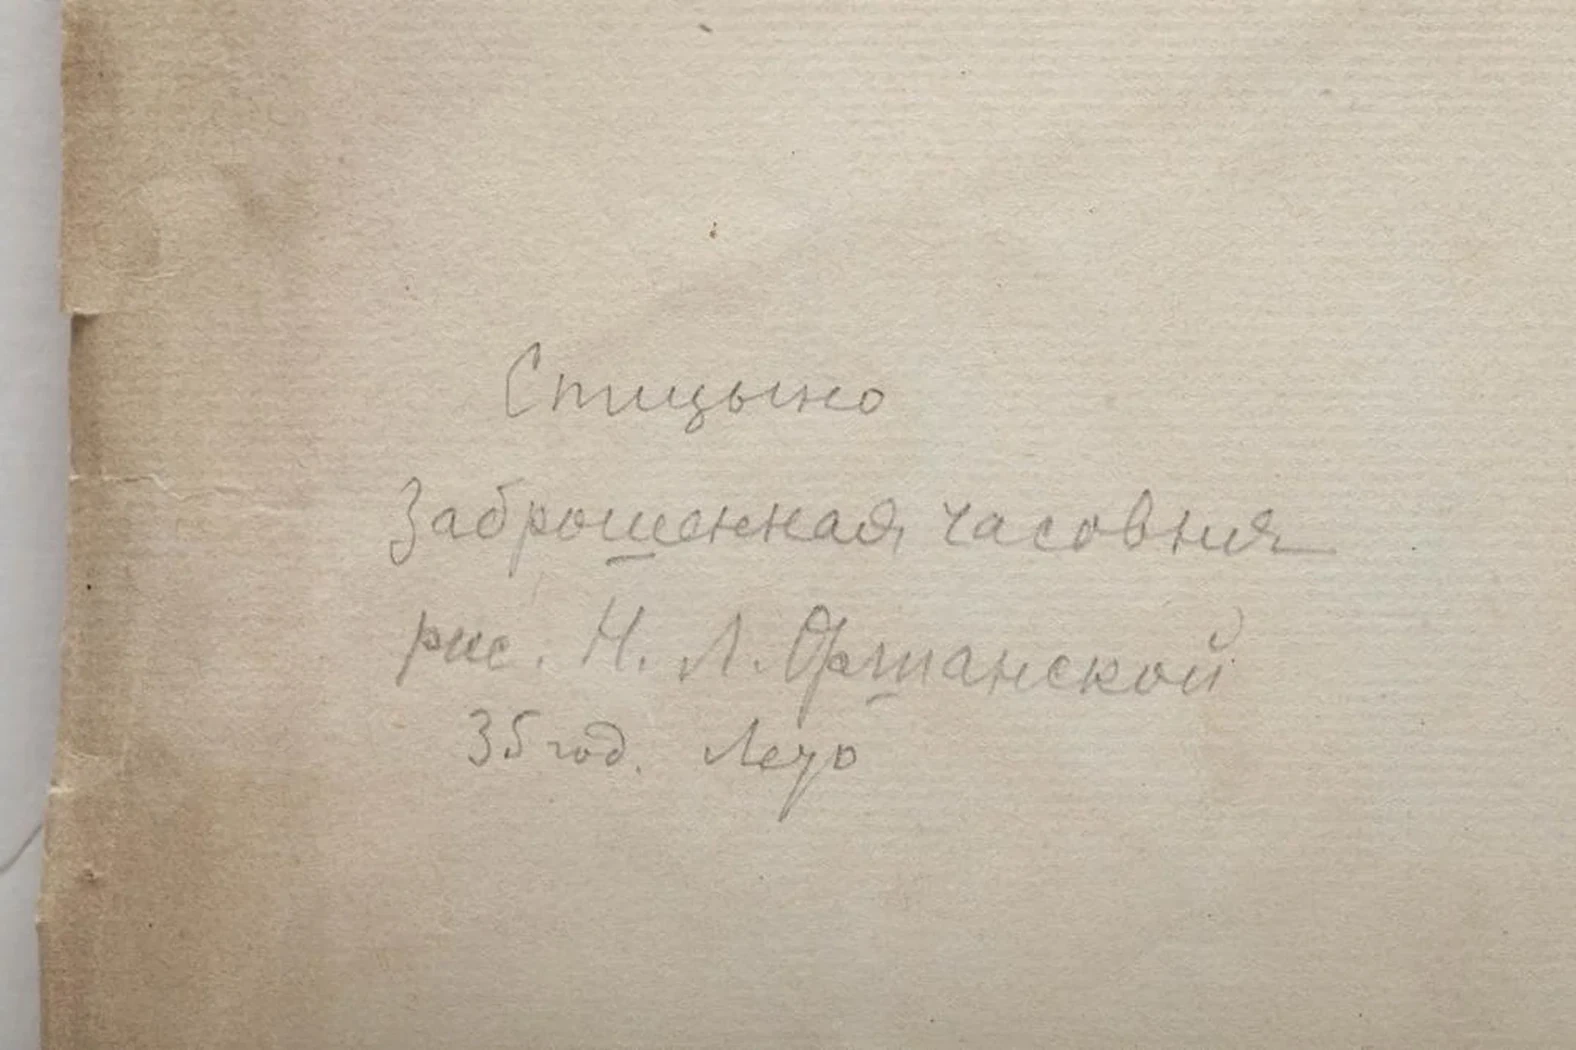 Стицыно
Заброшенная часовня
рис. Н. Л. Оршанской
35 год. Лето